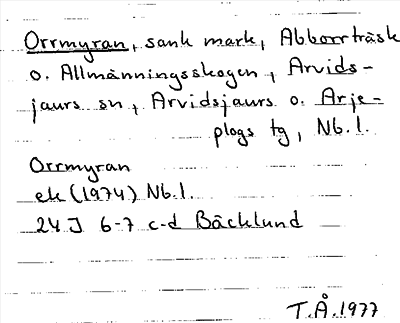 Orrmyran, sank mark, Abborrträsk
o. Allmänningsskogen, Arvids-
jaurs sn, Arvidsjaurs o. Arje-
plogs tg, Nb.l.
Orrmyran
ek (1974) Nb.l.
24J 6-7 c-d Bäcklund
T.Å.1977